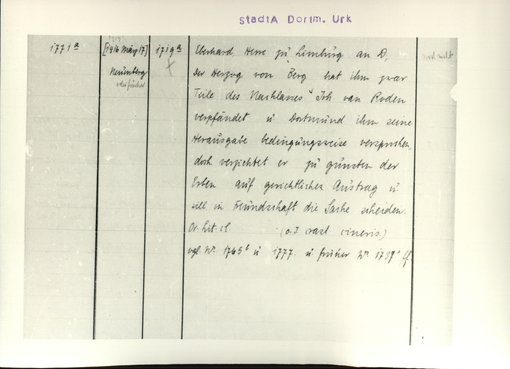 StadtA Dortm. Urk
1771a [1416 März 17] 1719a Eberhard Herr zu Limburg an D,
Neuenberg der Herzog von Berg hat ihm zwar
oder früher Teile des Nachlasses Joh van Roden
verpfändet u Dortmund ihm seine
Herausgabe bedingungsweise versprochen
doch verzichtet er zu gunsten der
Erben auf gerichtlichen Austrag u
will in Freundschaft die Sache scheiden.
Or lit cl (o. J crast cineris)
vgl. Nr. 1765b u 1777 u früher Nr